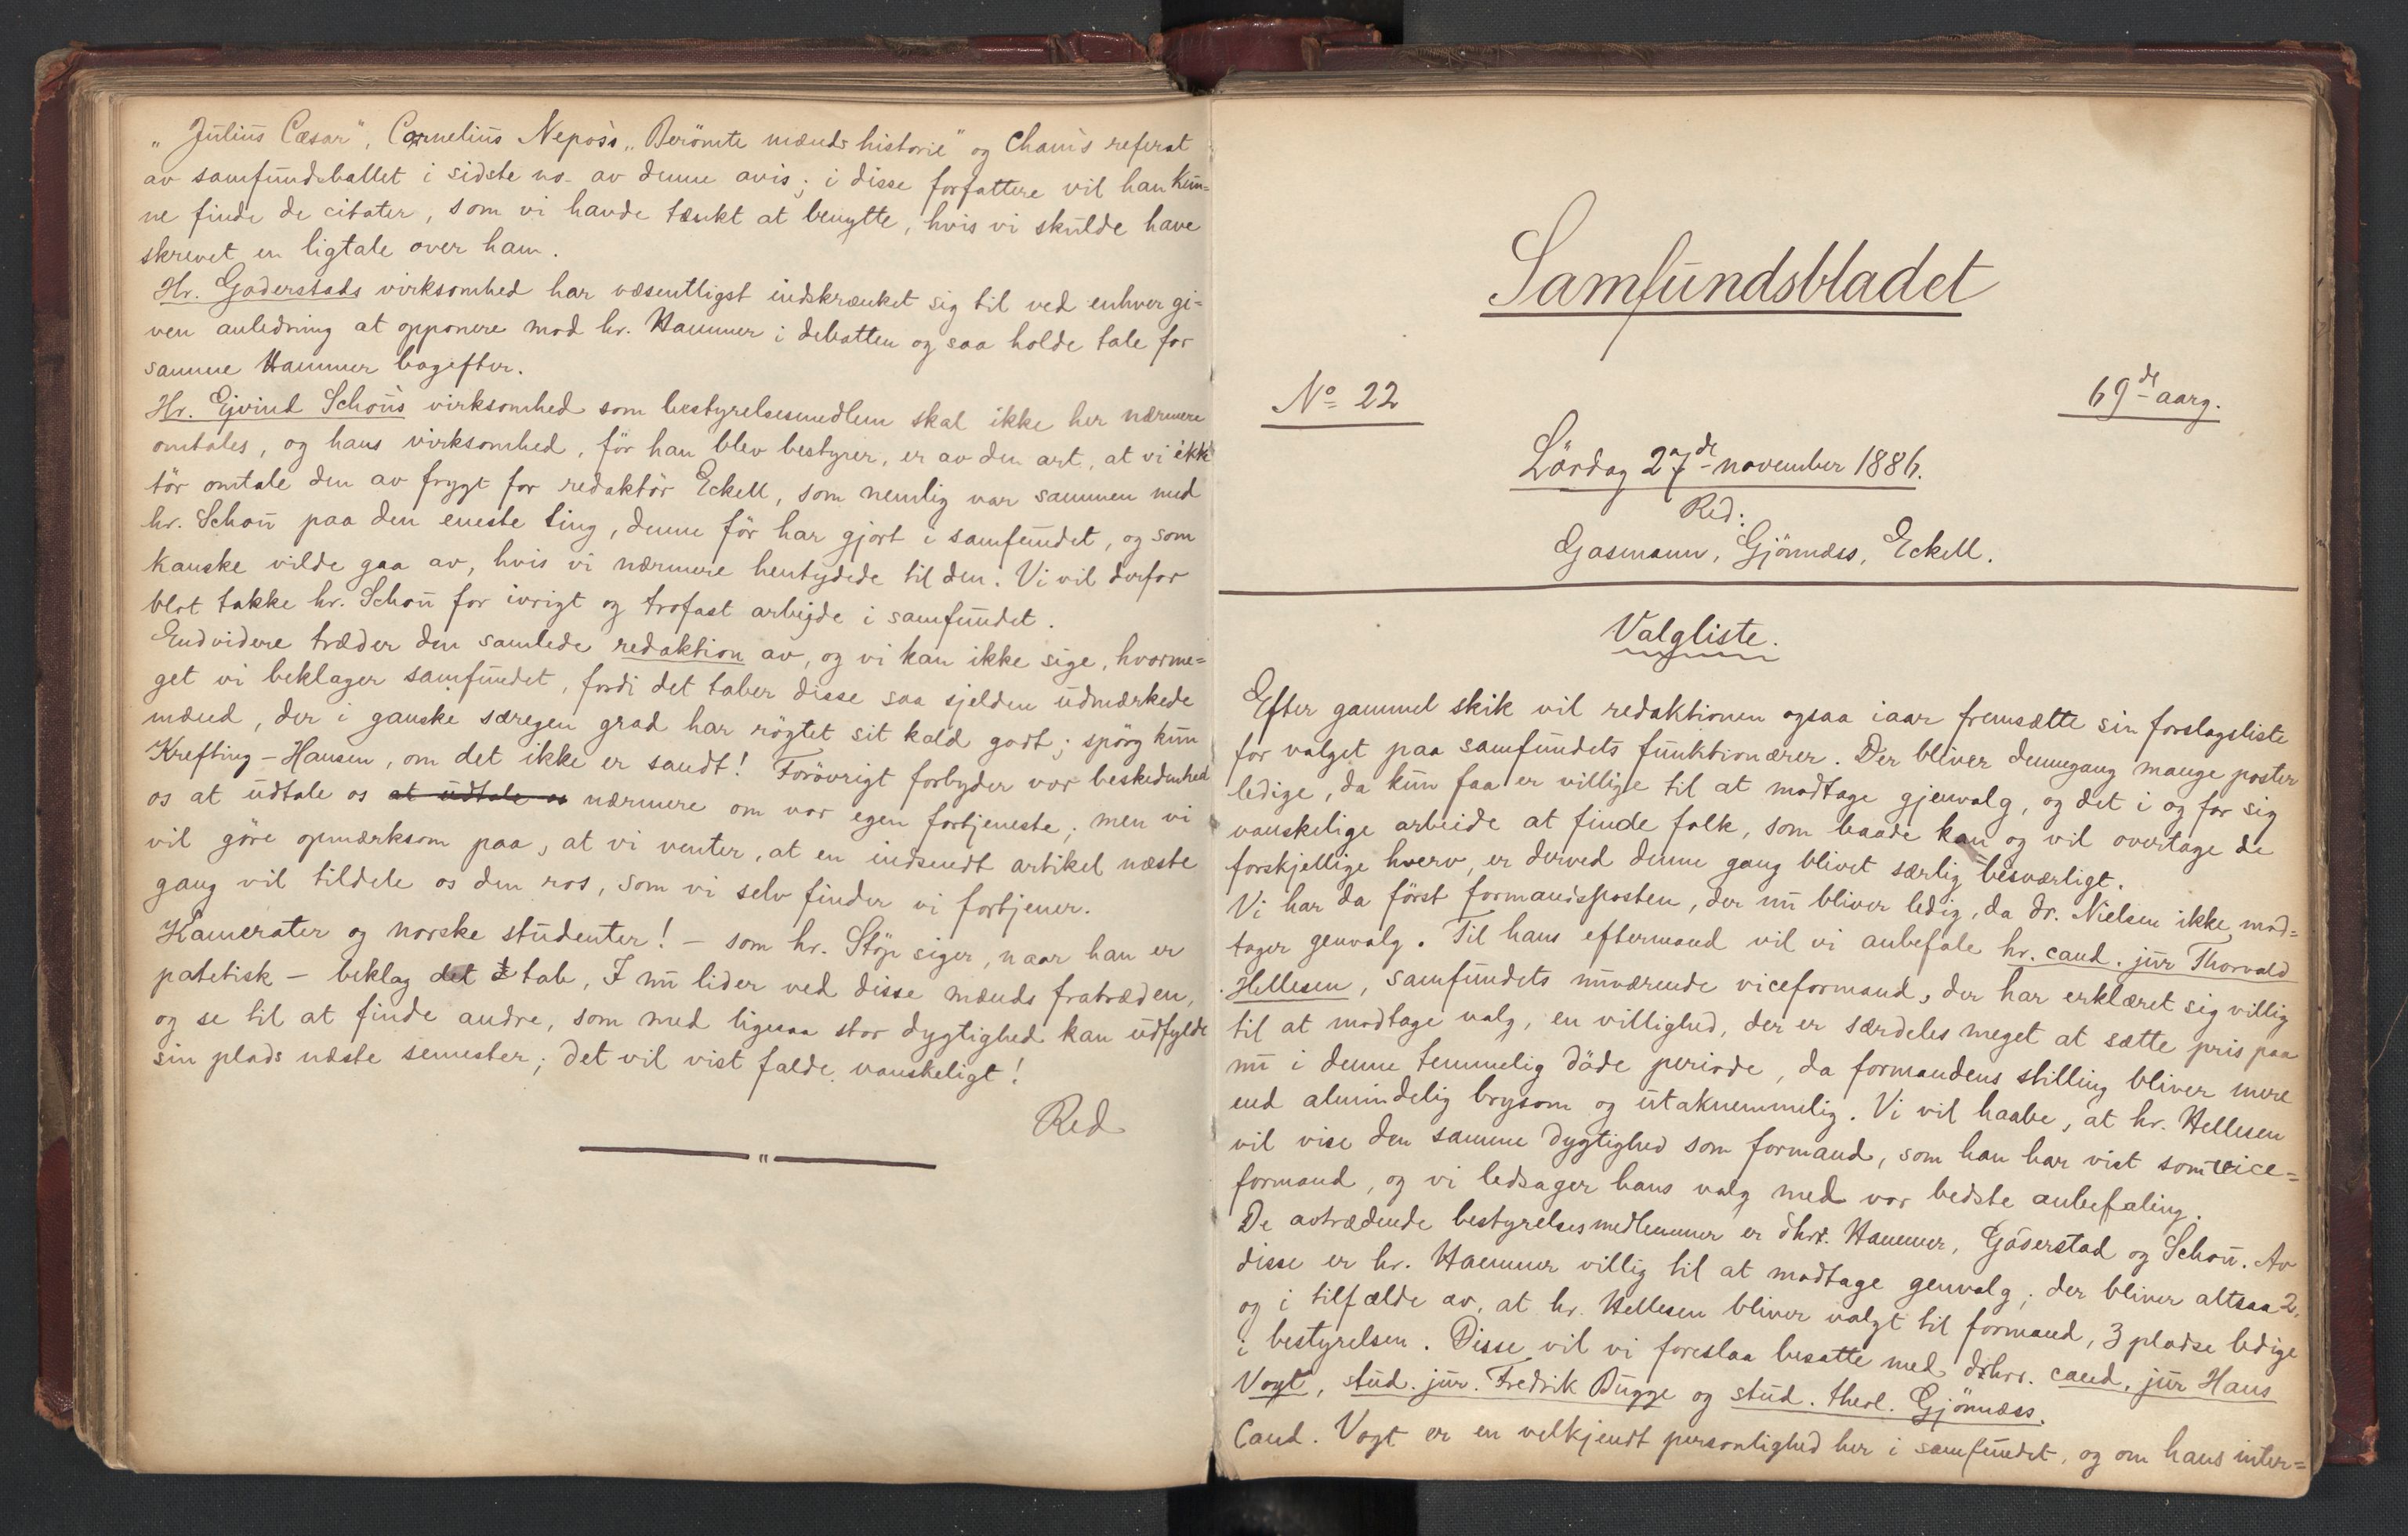 „Julius Cæsar", Cornelius Nepos's „Berömte mænds historie" og Cham's referat
av samfundsballet i sidste no. av denne avis; i disse forfattere vil han kun=
ne finde de citater, som vi havde tænkt at benytte, hvis vi skulde have
skrevet en ligtale over ham.
Hr. Gaderstads virksomhed har væsentligst indskrænket sig til ved enhver gi=
ven anledning at opponere mod hr. Hammer i debatten og saa holde tale for
samme Hammer bagefter.
Hr. Ejvind Schous virksomhed som bestyrelsesmedlem skal ikke her nærmere
omtales, og hans virksomhed, för han blev bestyrer, er av den art, at vi ikke
tör omtale den av frygt for redaktör Eckell, som nemlig var sammen med
hr. Schou paa den eneste ting, denne för har gjort i samfundet, og som
kanske vilde gaa av, hvis vi nærmere hentydede til den. Vi vil derfor
blot takke hr. Schou for ivrigt og trofast arbejde i samfundet.
Endvidere træder den samlede redaktion av, og vi kan ikke sige, hvorme=
get vi beklager samfundet, fordi det taber disse saa sjelden udmærkede
mænd, der i ganske særegen grad har rögtet sit kald godt; spörg kun
Krefting-Hansen, om det ikke er sandt! Forövrigt forbyder vor beskedenhed
os at udtale os at udtale os nærmere om vor egen fortjeneste; men vi
vil göre opmærksom paa, at vi venter, at en indsendt artikel næste
gang vil tildele os den ros, som vi selv finder vi fortjener.
Kamerater og norske studenter! – som hr. Stöp siger, naar han er
patetisk – beklag det tab, I nu lider ved disse mænds fratræden,
og se til at finde andre, som med ligesaa stor dygtighed kan udfylde
sin plads næste semester; det vil vist falde vanskeligt!
Red
Samfundsbladet
No 22
69de aarg.
Lördag 27de november 1886.
Red:
Gasmann, Gjönnæss, Eckell.
Valgliste.
Efter gammel skik vil redaktionen ogsaa iaar fremsætte sin forslagsliste
for valget paa samfundets funktionærer. Der bliver dennegang mange poster
ledige, da kun faa er villige til at modtage gjenvalg, og det i og for sig
vanskelige arbeide at finde folk, som baade kan og vil overtage de
forskjellige hverv, er derved denne gang blivet særlig besværligt.
Vi har da först formandsposten, der nu bliver ledig, da dr. Nielsen ikke mod=
tager genvalg. Til hans eftermand vil vi anbefale hr. cand. jur Thorvald
Hellesen, samfundets nuværende viceformand, der har erklæret sig villig
til at modtage valg, en villighed, der er særdeles meget at sætte pris paa
nu i denne temmelig döde periode, da formandens stilling bliver mere
end almindelig brysom og utaknemmelig. Vi vil haabe, at hr. Hellesen
vil vise den samme dygtighed som formand, som han har vist som vice=
formand, og vi ledsager hans valg med vor bedste anbefaling.
De avtrædende bestyrelsesmedlemmer er dhrr. Hammer, Gaderstad og Schou. Av
disse er hr. Hammer villig til at modtage genvalg; der bliver altsaa 2,
og i tilfælde av, at hr. Hellesen bliver valgt til formand, 3 pladse ledige
i bestyrelsen. Disse vil vi foreslaa besatte med dhrr. cand. jur Hans
Vogt, stud. jur. Fredrik Bugge og stud. theol. Gjönnæss.
Cand. Vogt er en velkjendt personlighed her i samfundet, og om hans inter=